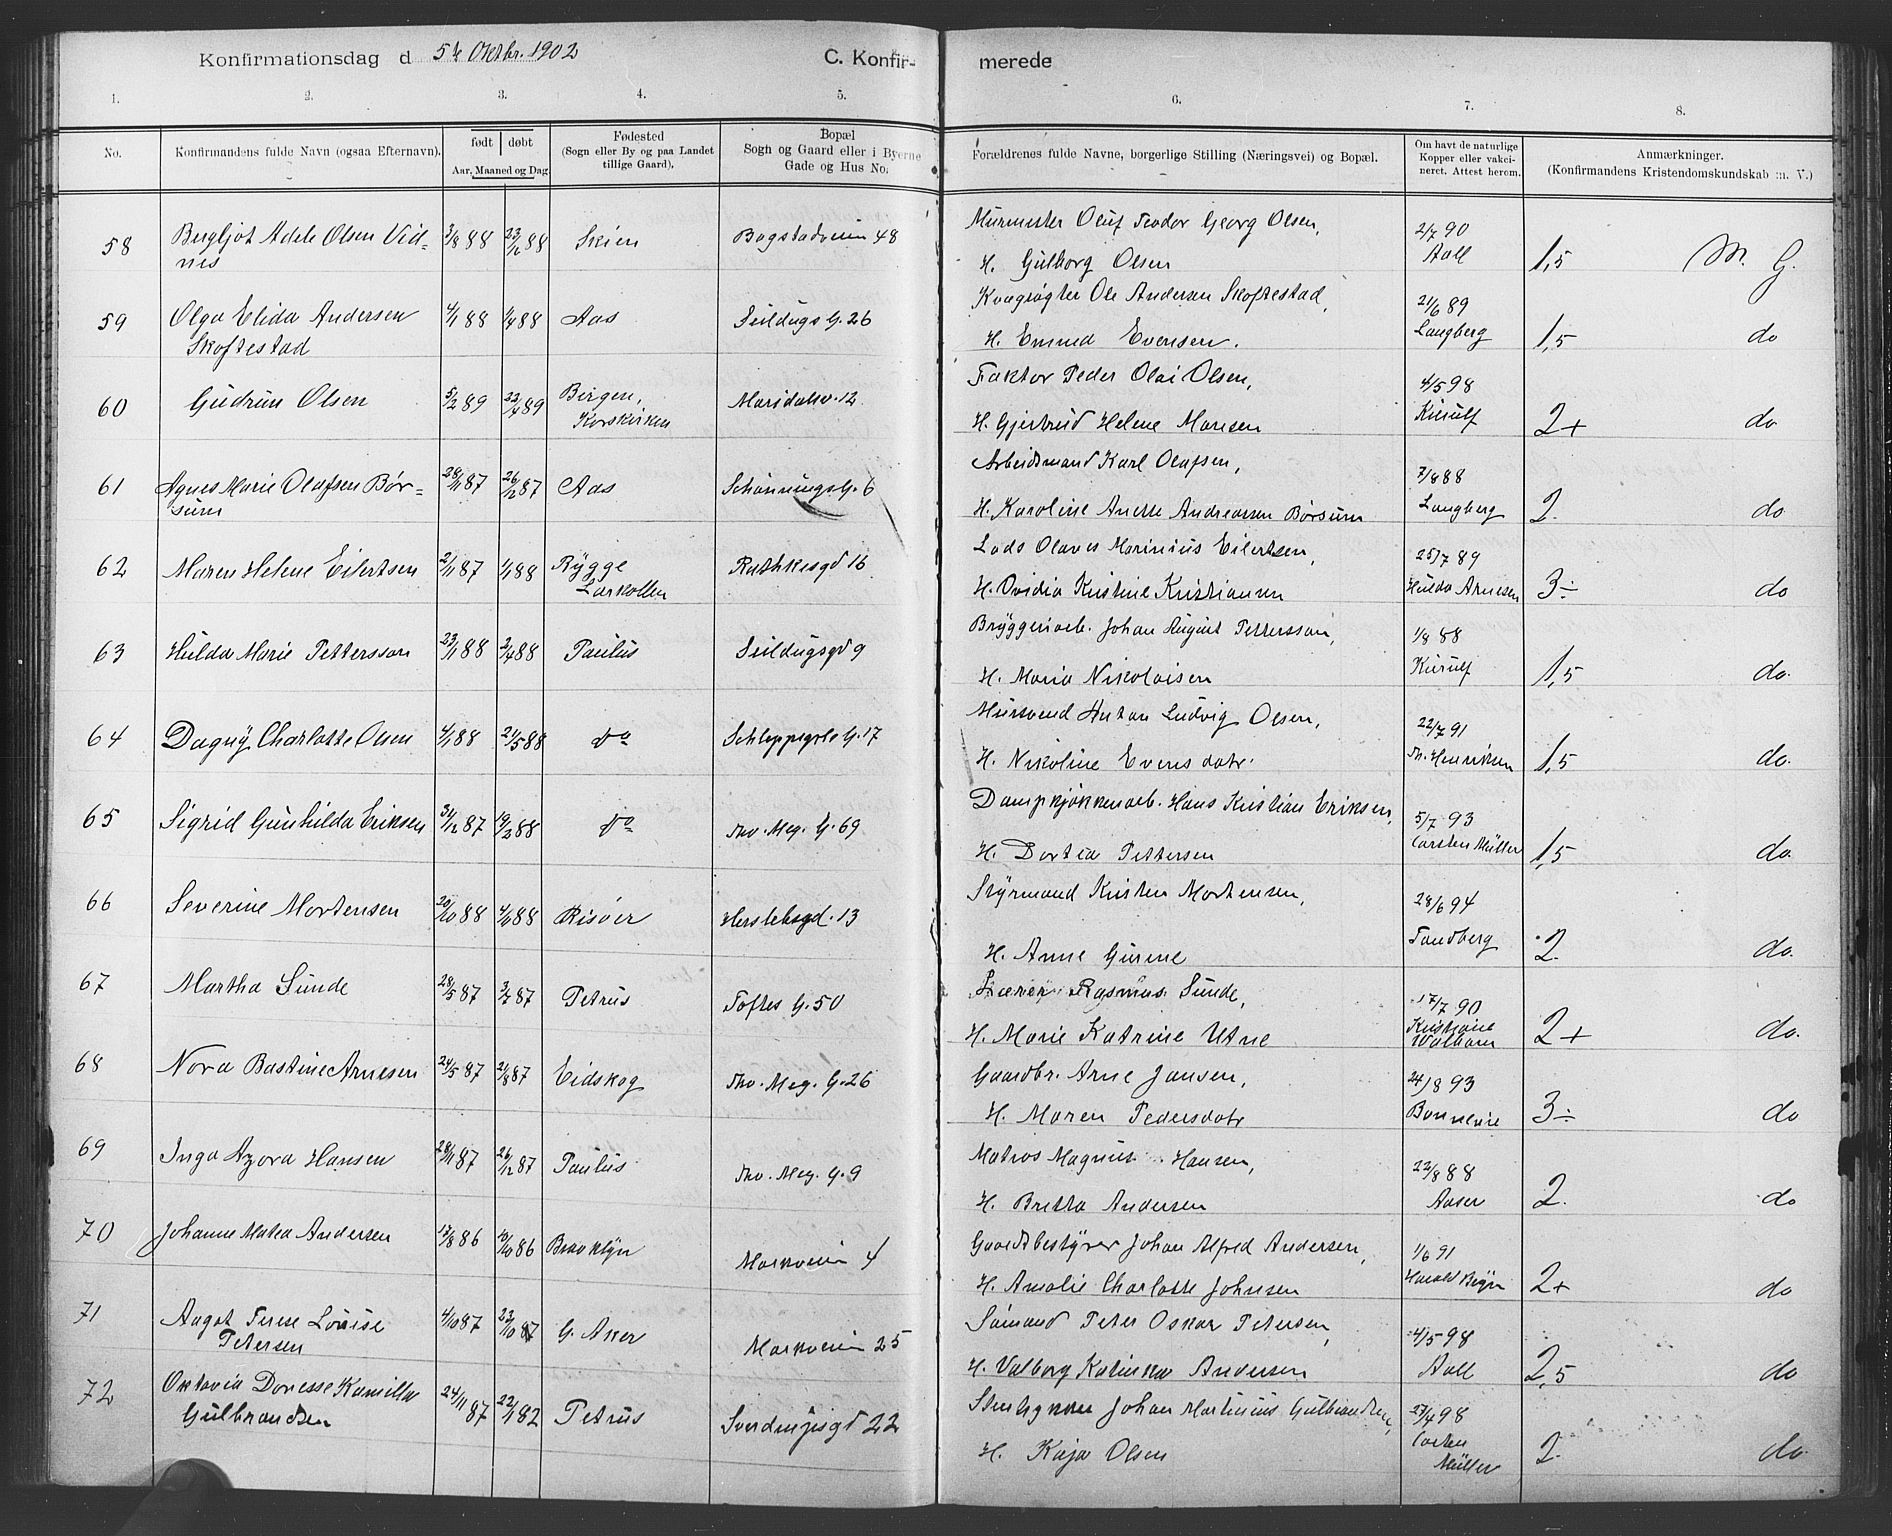 Konfirmationsdag d 5te Oktbr. 1902 C. Konfir- merede
1. 2. 3. 4. 5. 6. 7. 8.
No.
Konfirmandens fulde Navn (ogsaa Efternavn).
født døbt
Aar, Maaned og Dag.
Fødested
(Sogn eller By og paa Landet
tillige Gaard).
Bopæl
Sogn og Gaard eller i Byerne
Gade og Hus No.
Forældrenes fulde Navne, borgerlige Stilling (Næringsvei) og Bopæl.
Om havt de naturlige
Kopper eller vakci-
neret. Attest herom.
Anmærkninger.
(Konfirmandens Kristendomskundskab m. V.)
58 Bergljot Adele Olsen Vid- 3/8 88 88 Skien Bogstadveien 48 Murmester Oluf Teodor Georg Olsen, 2/7 90
nes H. Gulborg Olsen Aall 1,5 M. G.
59 Olga Elida Andersen 4/1 88 1/4 88 Aas Seildugs G. 26 Kvægrøgter Ole Andersen Skoftestad, 21/6 89
Skoftestad H. Emund Evensen. Langberg 1,5 do
60 Gudrun Olsen 5/2 89 22/4 89 Bergen, Maridalsv. 12 Faktor Peder Olai Olsen, 4/5 98
Korskirken H. Gjertrud Helene Monsen Kierulf 2+ do
61 Agnes Marie Olafsen Bør= 28/11 87 26/12 87 Aas Schønningsg. 6 Arbeidsmand Karl Olafsen, 7/8 88
sum H. Karoline Anette Andreassen Børsum Langberg 2. do
62 Maren Helene Eilertsen 2/11 87 1/1 88 Rygge Rathkesgd 16 Lods Olaves Marinius Eilertsen, 25/7 89
Larkollen H. Ovidia Kristine Kristiansen Hulda Arnesen 3÷ do
63 Hulda Marie Pettersson 23/1 88 2/4 88 Paulus Seildugsgd 9 Bryggeriarb. Johan August Pettersson, 1/8 88
H. Maria Nikolaisen Kierulf 1,5 do.
64 Dagny Charlotte Olsen 4/1 88 21/5 88 do Schleppegrels G. 17 Mursvend Anton Ludvig Olsen, 22/7 91
H. Nikoline Evensdatr. Th. Henriksen 1,5 do.
65 Sigrid Gunhilda Eriksen 31/12 87 19/2 88 do Thv. Mey. G. 69 Dampkjøkkenarb. Hans Kristian Eriksen, 5/7 93
H. Dortea Pettersen Carsten Müller 1,5 do.
66 Severine Mortensen 88 88 Risøer Herslebsgd. 13 Styrmand Kristen Mortensen, 28/6 94
H. Anne Gurine Tandberg 2. do.
67 Martha Sunde 28/5 87 3/7 87 Petrus Toftes G. 50 Rasmus Sunde, 17/7 90
H. Marie Katrine Utne Kristiane 2+ do.
68 Nora Bastine Arnesen 24/5 87 21/8 87 Eidskog Thv. Mey. G. 26 Gaardbr. Arne Jansen, 24/8 93
H. Maren Pedersdatr Bonnevie 3÷ do
69 Inga Azora Hansen 28/11 87 26/12 87 Paulus Thv. Mey. G. 9 Matros Magnus Hansen, 22/8 88
H. Bretha Andersen Aaser 2. do
70 Johanne Malea Andersen 17/8 86 10/10 86 Brooklyn Markveien 4 Gaardsbestyrer Johan Alfred Andersen, 1/6 91
H. Amalie Charlotte Johnsen Harald Bryn 2+ do
71 Aagot Terese Louise 4/10 87 23/10 87 G. Aker Markveien 25 Sømand Peter Oskar Petersen, 4/5 98
Petersen H. Valborg Katinka Andersen Aall 2,5 do
72 Oktavia Doresse Kamilla 24/11 87 22/1 82 Petrus Sverdrupsgd 22 Stenhugger Johan Martinius Gulbrandsen, 27/4 98
Gulbrandsen H. Kaja Olsen Carsten 2. do
Müller